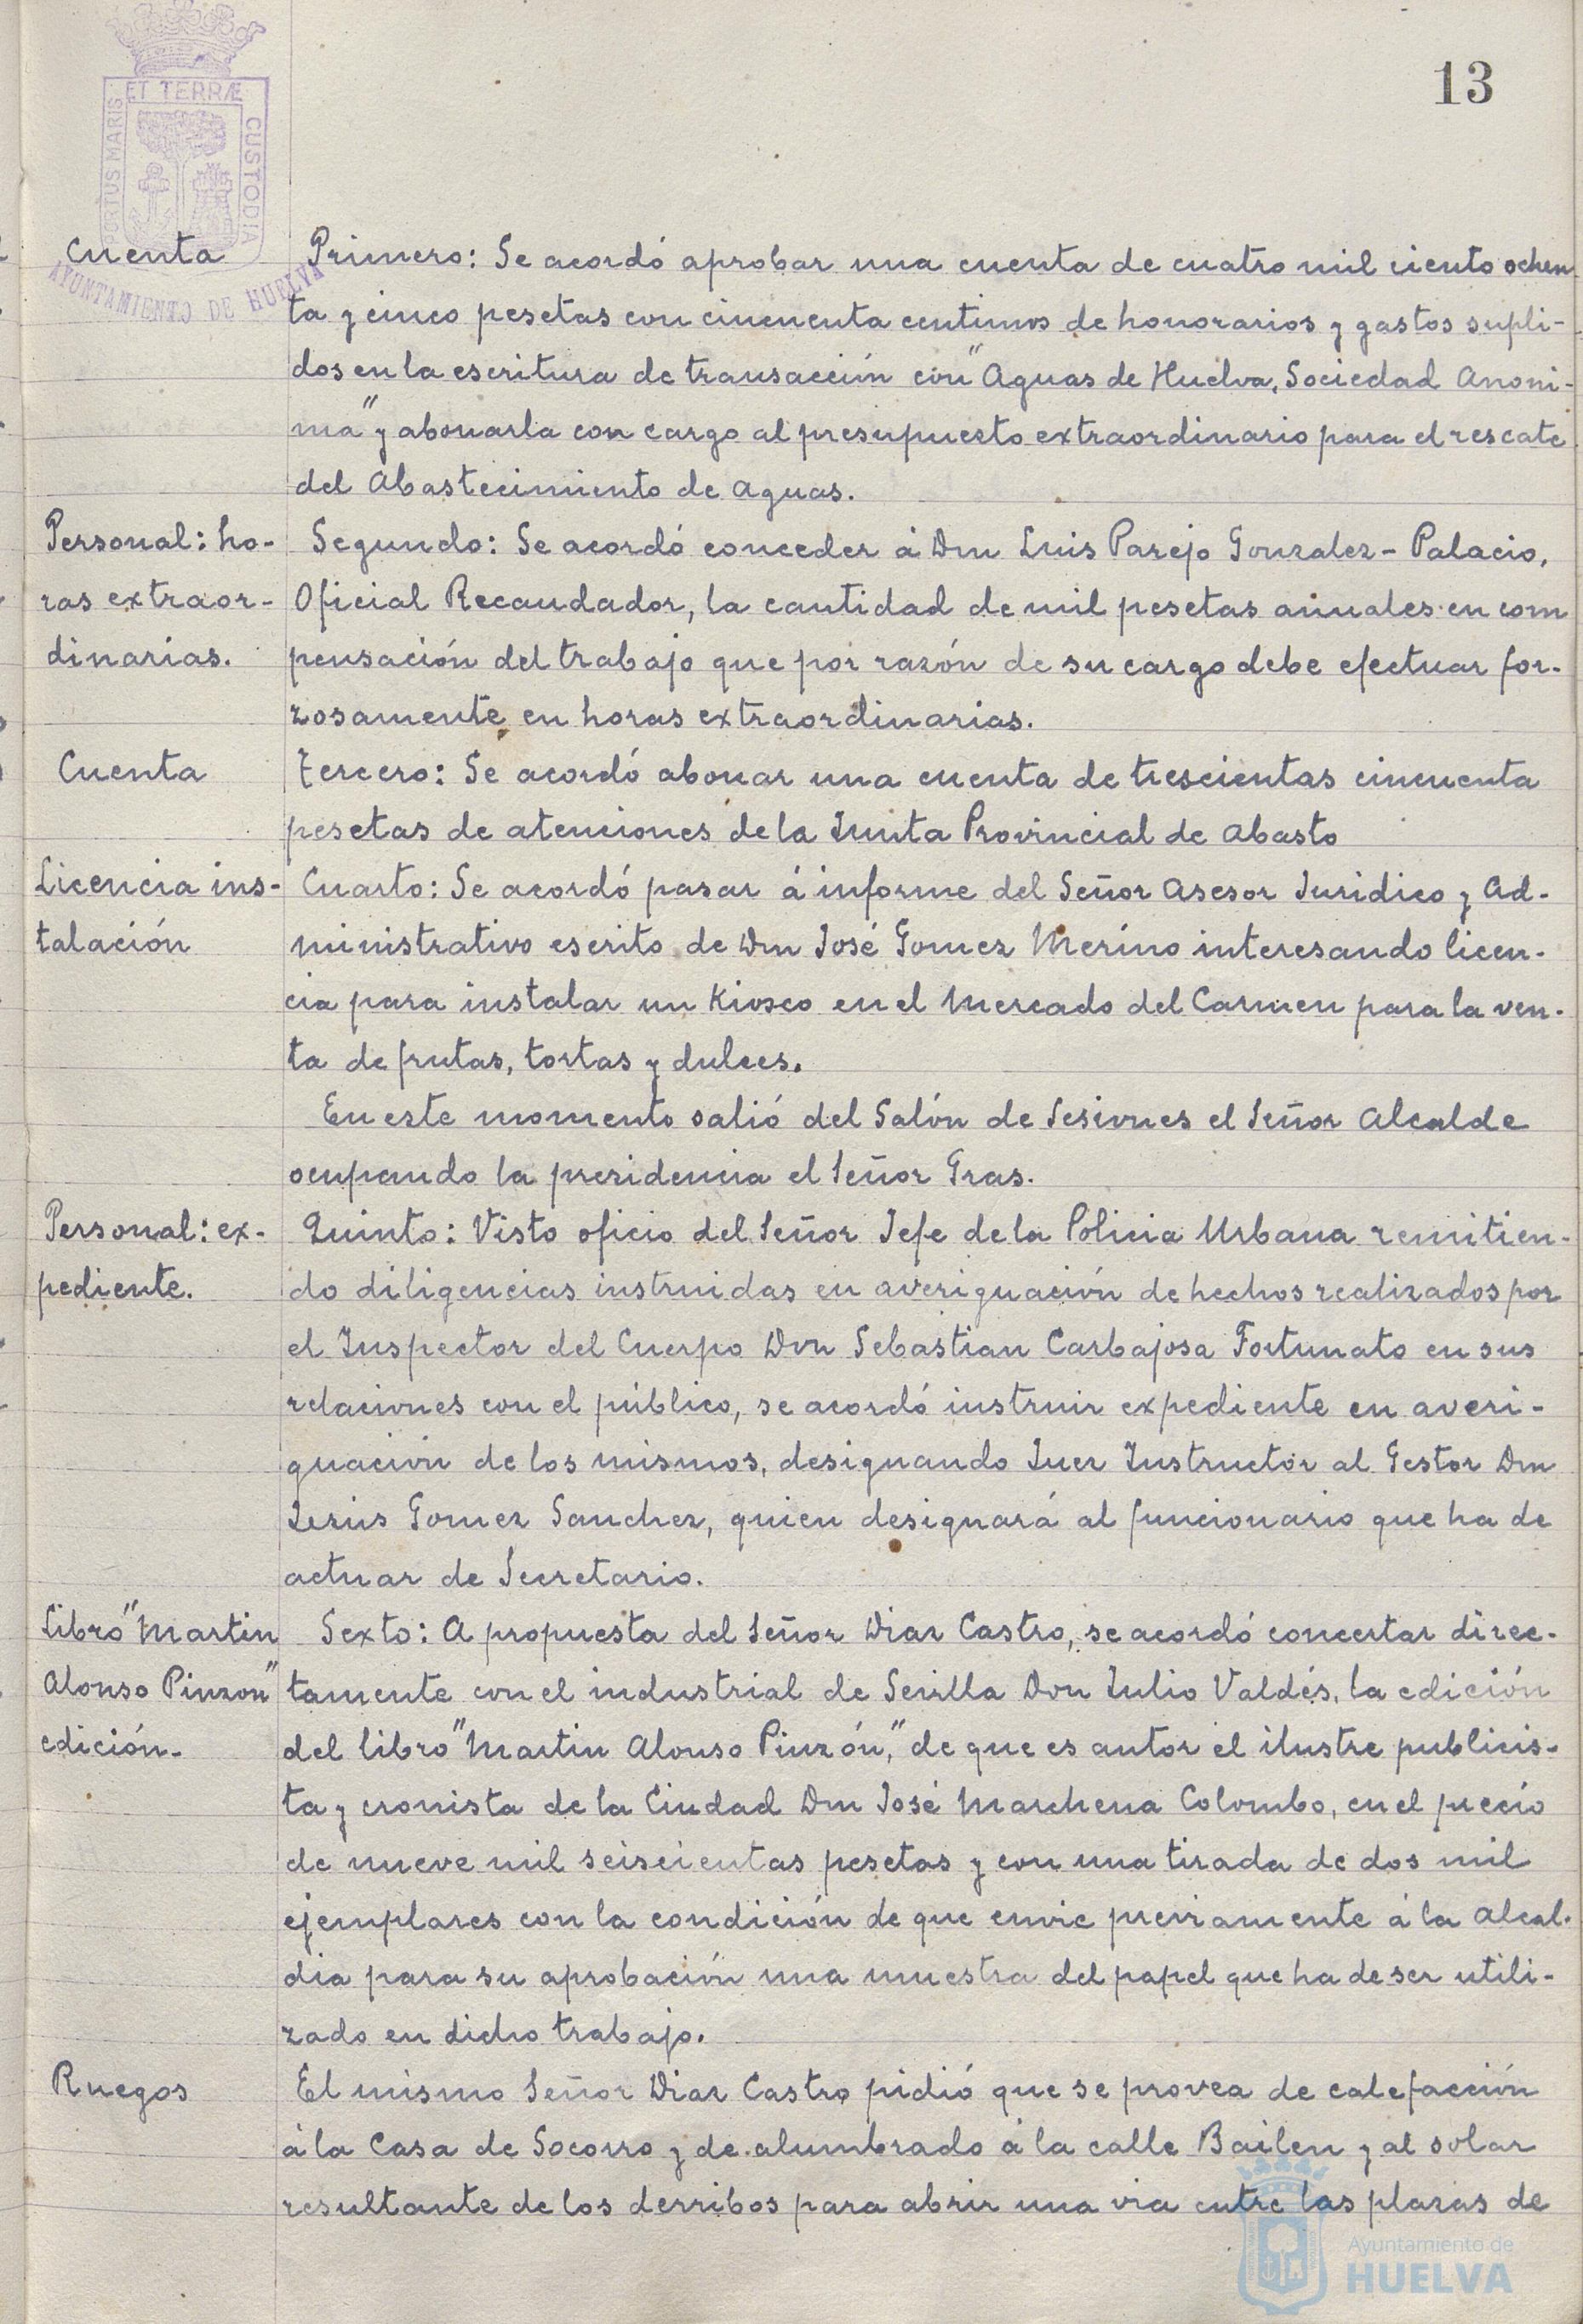 13
PORTUS MARIS ET TERRÆ CUSTODIA
AYUNTAMIENTO DE HUELVA
Cuenta
Primero: Se acordó aprobar una cuenta de cuatro mil ciento ochen
ta y cinco pesetas con cincuenta centimos de honorarios y gastos supli-
dos en la escritura de transacción con "Aguas de Huelva, Sociedad Anoni-
ma" y abonarla con cargo al presupuesto extraordinario para el rescate
del Abastecimiento de Aguas.
Personal: ho-
ras extraor-
dinarias.
Segundo: Se acordó conceder á Don Luis Parejo Gonzalez-Palacio,
Oficial Recaudador, la cantidad de mil pesetas anuales en com
pensación del trabajo que por razón de su cargo debe efectuar for-
zosamente en horas extraordinarias.
Cuenta
Tercero: Se acordó abonar una cuenta de trescientas cincuenta
pesetas de atenciones de la Junta Provincial de Abasto
Licencia ins-
talación
Cuarto: Se acordó pasar á informe del Señor Asesor Juridico y Ad-
ministrativo escrito de Don José Gomez Merino interesando licen-
cia para instalar un Kiosco en el Mercado del Carmen para la ven-
ta de frutas, tortas y dulces.
En este momento salió del Salón de Sesiones el Señor Alcalde
ocupando la presidencia el Señor Gras.
Personal: ex-
pediente.
Quinto: Visto oficio del Señor Jefe de la Policia Urbana remitien-
do diligencias instruidas en averiguación de hechos realizados por
el Inspector del Cuerpo Don Sebastian Carbajosa Fortunato en sus
relaciones con el público, se acordó instruir expediente en averi-
guación de los mismos, designando Juez Instructor al Gestor Don
Jesús Gomez Sanchez, quien designará al funcionario que ha de
actuar de Secretario.
Libro "Martin
Alonso Pinzon"
edición.
Sexto: A propuesta del Señor Diaz Castro, se acordó concertar direc-
tamente con el industrial de Sevilla Don Julio Valdés, la edición
del libro "Martin Alonso Pinzón," de que es autor el ilustre publicis-
ta y cronista de la Ciudad Don José Marchena Colombo, en el precio
de nueve mil seiscientas pesetas y con una tirada de dos mil
ejemplares con la condición de que envie previamente á la Alcal-
dia para su aprobación una muestra del papel que ha de ser utili-
zado en dicho trabajo.
Ruegos
El mismo Señor Diaz Castro pidió que se provea de calefacción
á la Casa de Socorro y de alumbrado á la calle Bailen y al solar
resultante de los derribos para abrir una via entre las plazas de
Ayuntamiento de
HUELVA